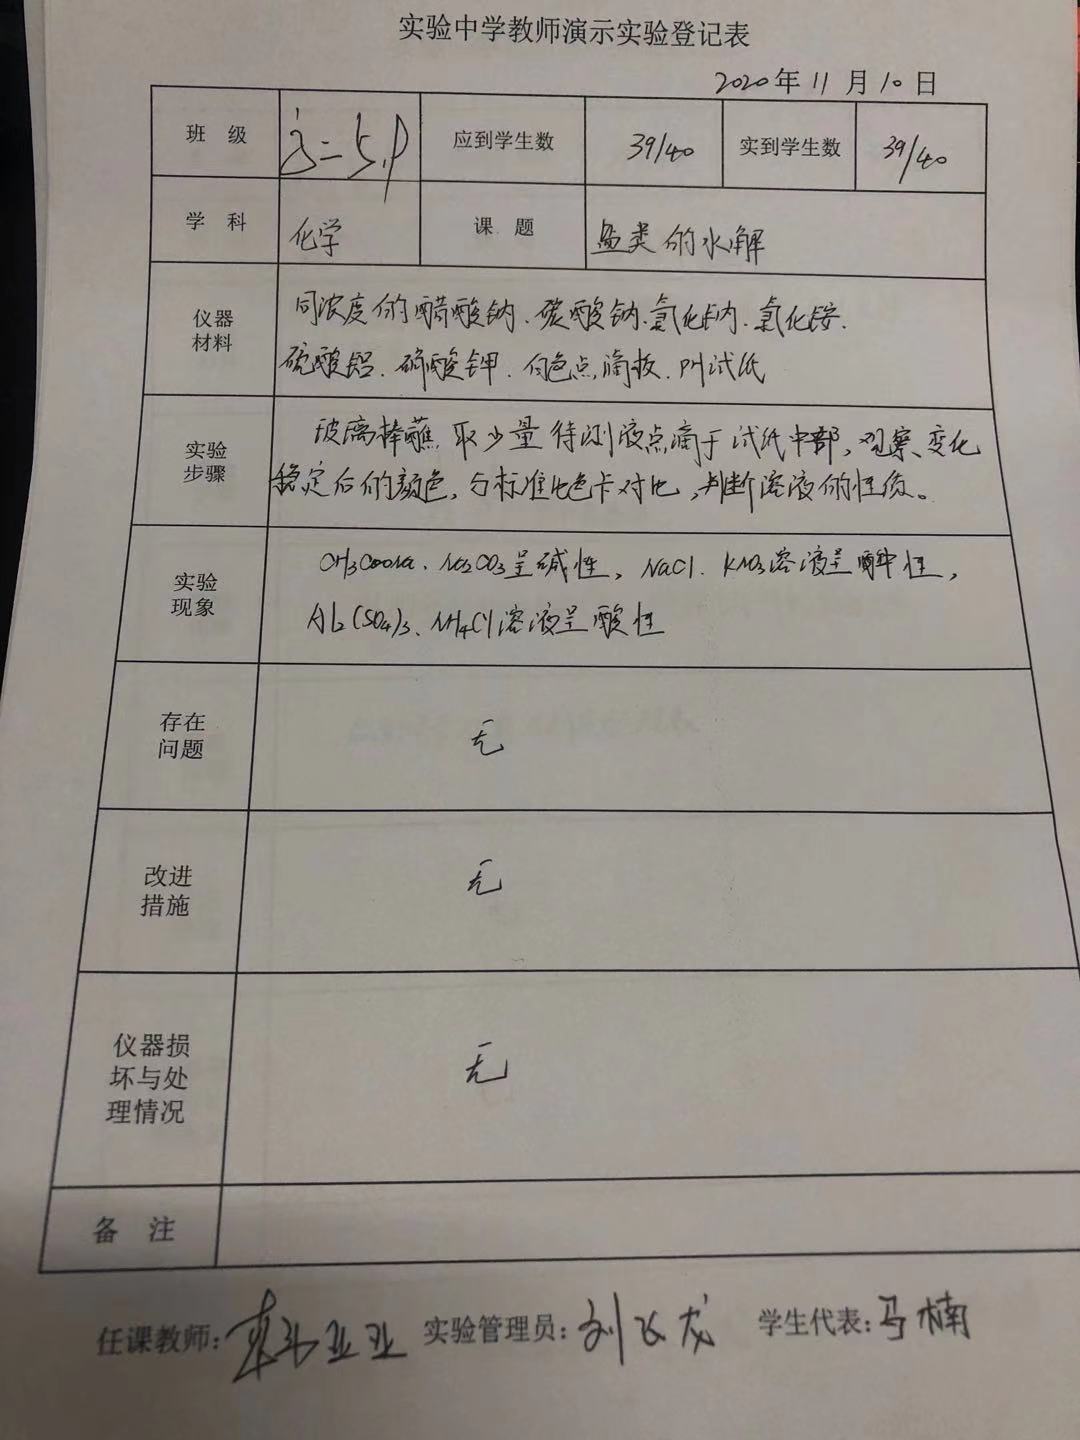 实验中学教师演示实验登记表
2020年11月10日
班 级 应到学生数 39/40 实到学生数 39/40
学 科 化学 课 题 盐类的水解
仪器材料 同浓度的醋酸钠、碳酸钠、氯化钠、氯化铵、
硫酸铝、硝酸钾、白色点滴板、PH试纸
实验步骤 玻璃棒蘸取少量待测液点滴于试纸中部,观察变化
稳定后的颜色,与标准比色卡对比,判断溶液的性质。
实验现象 CH3COONa、Na2CO3呈碱性,NaCl、KNO3溶液呈 性,
Al2(SO4)3、NH4Cl溶液呈酸性
存在问题 无
改进措施 无
仪器损坏与处理情况 无
备 注
任课教师: 实验管理员:刘飞龙 学生代表:马楠